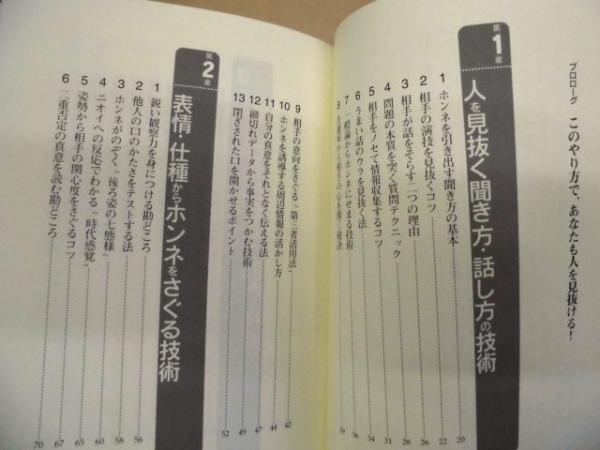 プロローグ このやり方で、あなたも人を見抜ける!
第1章 人を見抜く聞き方・話し方の技術
1 ホンネを引き出す聞き方の基本 20
2 相手の演技を見抜くコツ 22
3 相手が話をそらす二つの理由 26
4 問題の本質を突く質問テクニック 28
5 相手をノセて情報収集するコツ 31
6 うまい話のウラを見抜く法 34
7 一般論からホンネにせまる技術 36
8
9 相手の意向をさぐる〝第三者活用法〟 42
10 ホンネを誘導する周辺情報の活かし方 44
11 自分の真意をそれとなく伝える法 47
12 細切れデータから事実をつかむ技術 49
13 閉ざされた口を開かせるポイント 52
第2章 表情・仕種からホンネをさぐる技術
1 鋭い観察力を身につける勘どころ 56
2 他人の口のかたさをテストする法 58
3 ホンネがのぞく〝後ろ姿の七態様〟 60
4 ニオイへの反応でわかる〝時代感覚〟 65
5 姿勢から相手の関心度をさぐるコツ 67
6 二重否定の真意を読む勘どころ 70